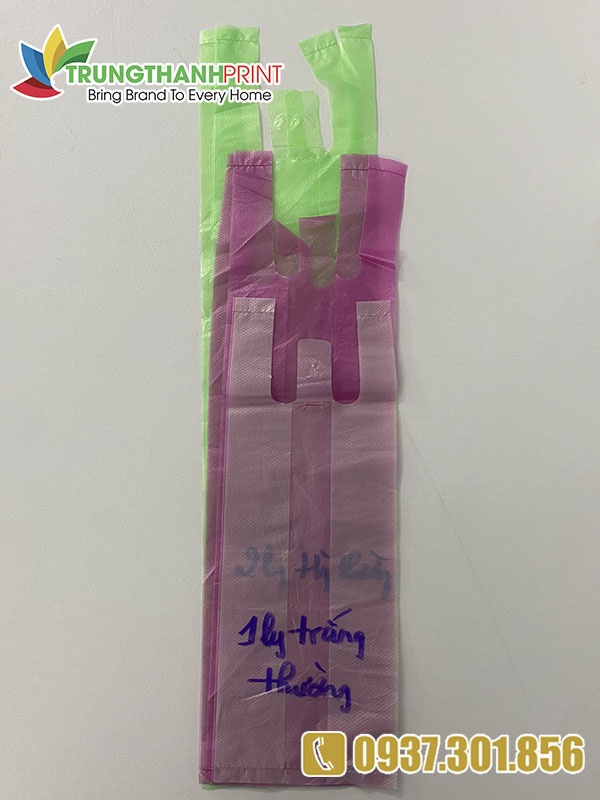 TRUNGTHANHPRINT
Bring Brand To Every Home
2ly
1ly trắng
thường
0937.301.856